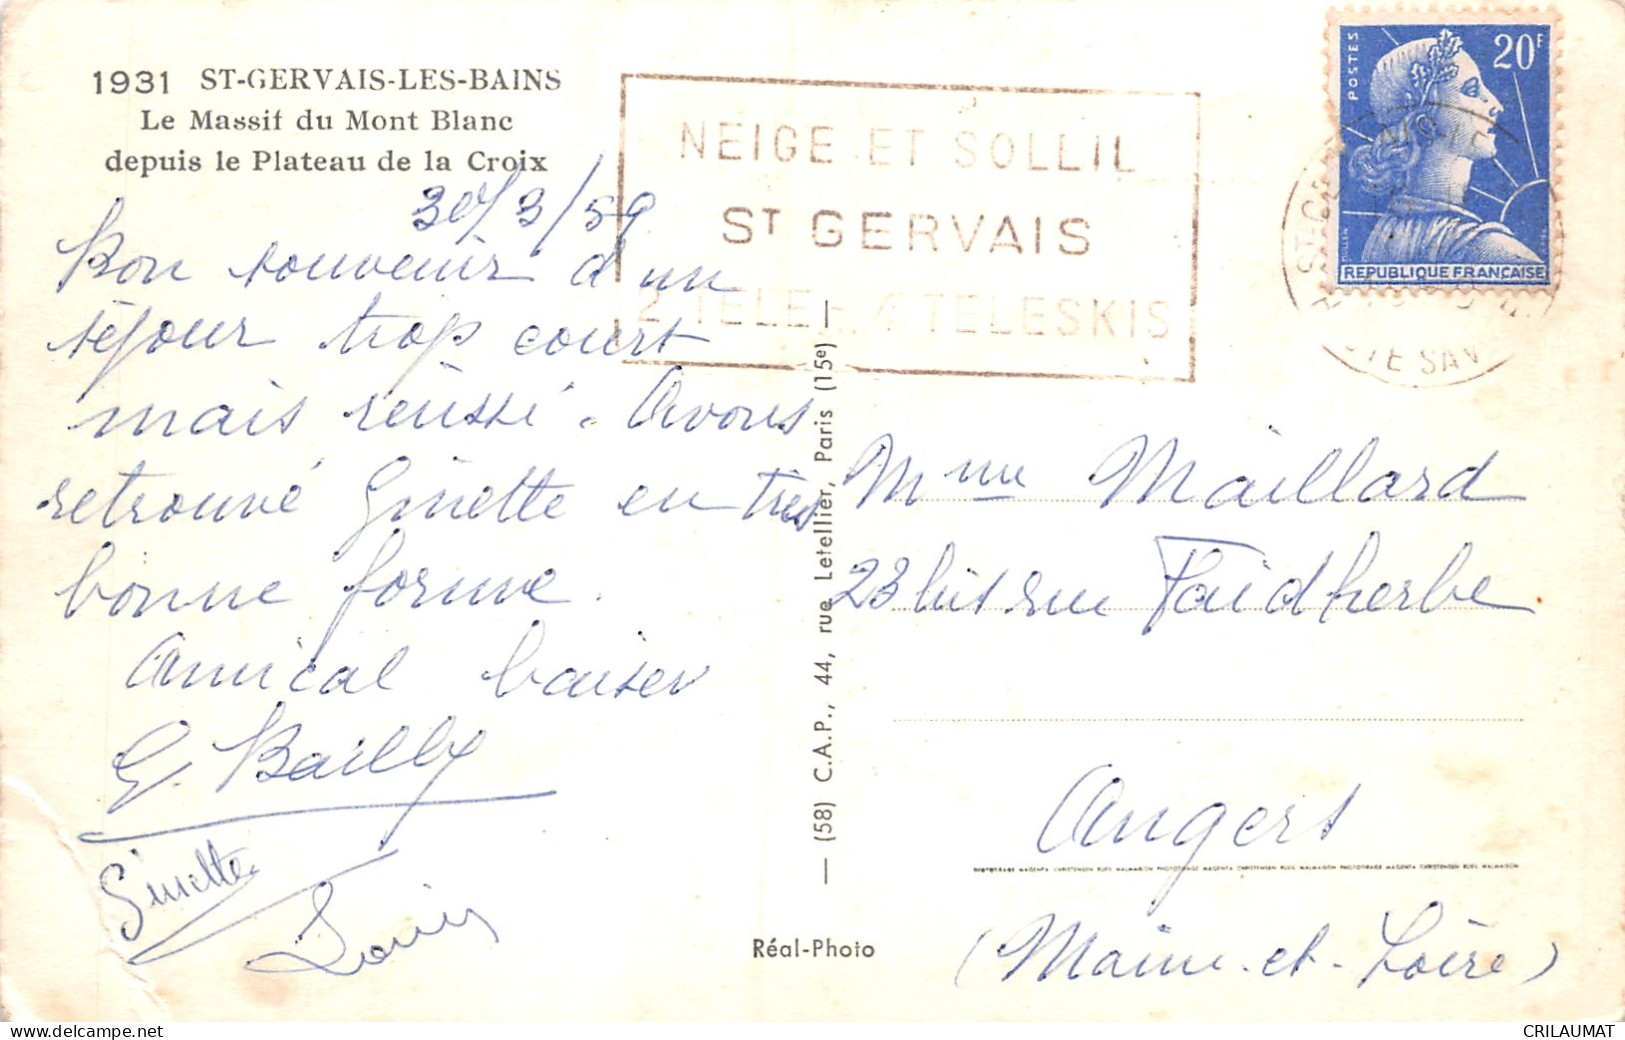 1931 ST-GERVAIS-LES-BAINS
Le Massif du Mont Blanc
depuis le Plateau de la Croix
30/3/59
Bon souvenir d'un
séjour trop court
mais réussi. Avons
retrouvé Ginette en très
bonne forme.
Amical baiser
G. Bailly
Ginette
Louis
NEIGE ET SOLLIL
ST GERVAIS
2 TELE - 4 TELESKIS
POSTES
20F
REPUBLIQUE FRANÇAISE
(58) C.A.P., 44, rue Letellier, Paris (15e)
Réal-Photo
Mme Maillard
23 bis rue Faidherbe
Angers
(Maine-et-Loire)
www.delcampe.net
CRILAUMAT